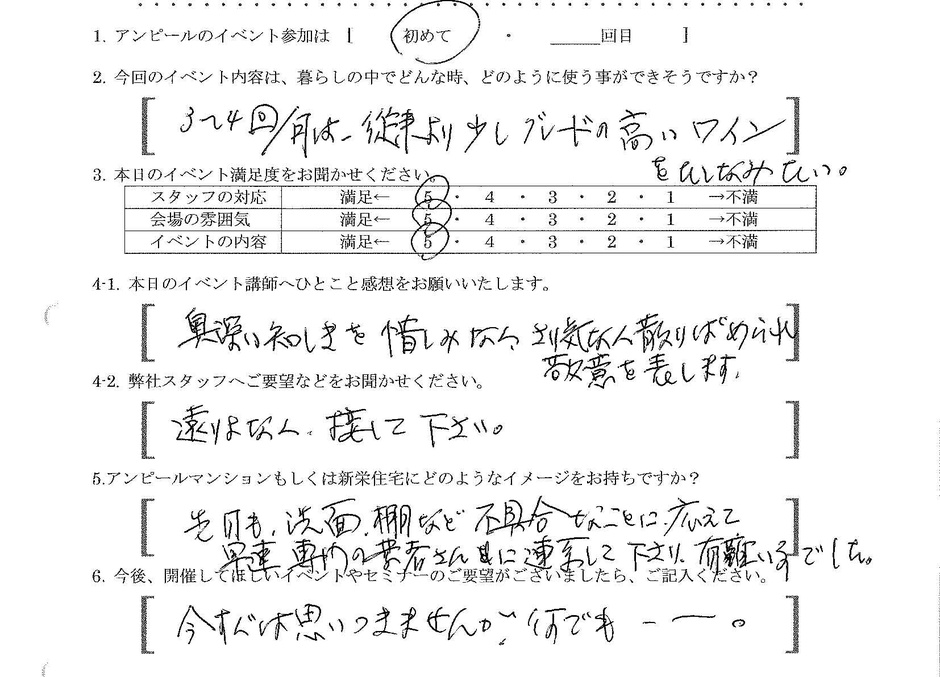 1. アンピールのイベント参加は [ 初めて ・ _____回目 ]
2. 今回のイベント内容は、暮らしの中でどんな時、どのように使う事ができそうですか？
3〜4回/月は、従来より少しグレードの高いワイン
をたしなみたい。
3. 本日のイベント満足度をお聞かせください。
スタッフの対応 満足← 5 ・ 4 ・ 3 ・ 2 ・ 1 →不満
会場の雰囲気 満足← 5 ・ 4 ・ 3 ・ 2 ・ 1 →不満
イベントの内容 満足← 5 ・ 4 ・ 3 ・ 2 ・ 1 →不満
4-1. 本日のイベント講師へひとこと感想をお願いいたします。
奥深い知しきを惜しみなく、さり気なく散りばめられ
敬意を表します。
4-2. 弊社スタッフへご要望などをお聞かせください。
遠りょなく、接して下さい。
5.アンピールマンションもしくは新栄住宅にどのようなイメージをお持ちですか？
先日も、洗面、棚など不具合なことに、応えて
早速 専門の業者さん 連系して下さり、有難い事でした。
6. 今後、開催してほしいイベントやセミナーのご要望がございましたら、ご記入ください。
今すぐは思いつきませんが、何でも ー ー 。